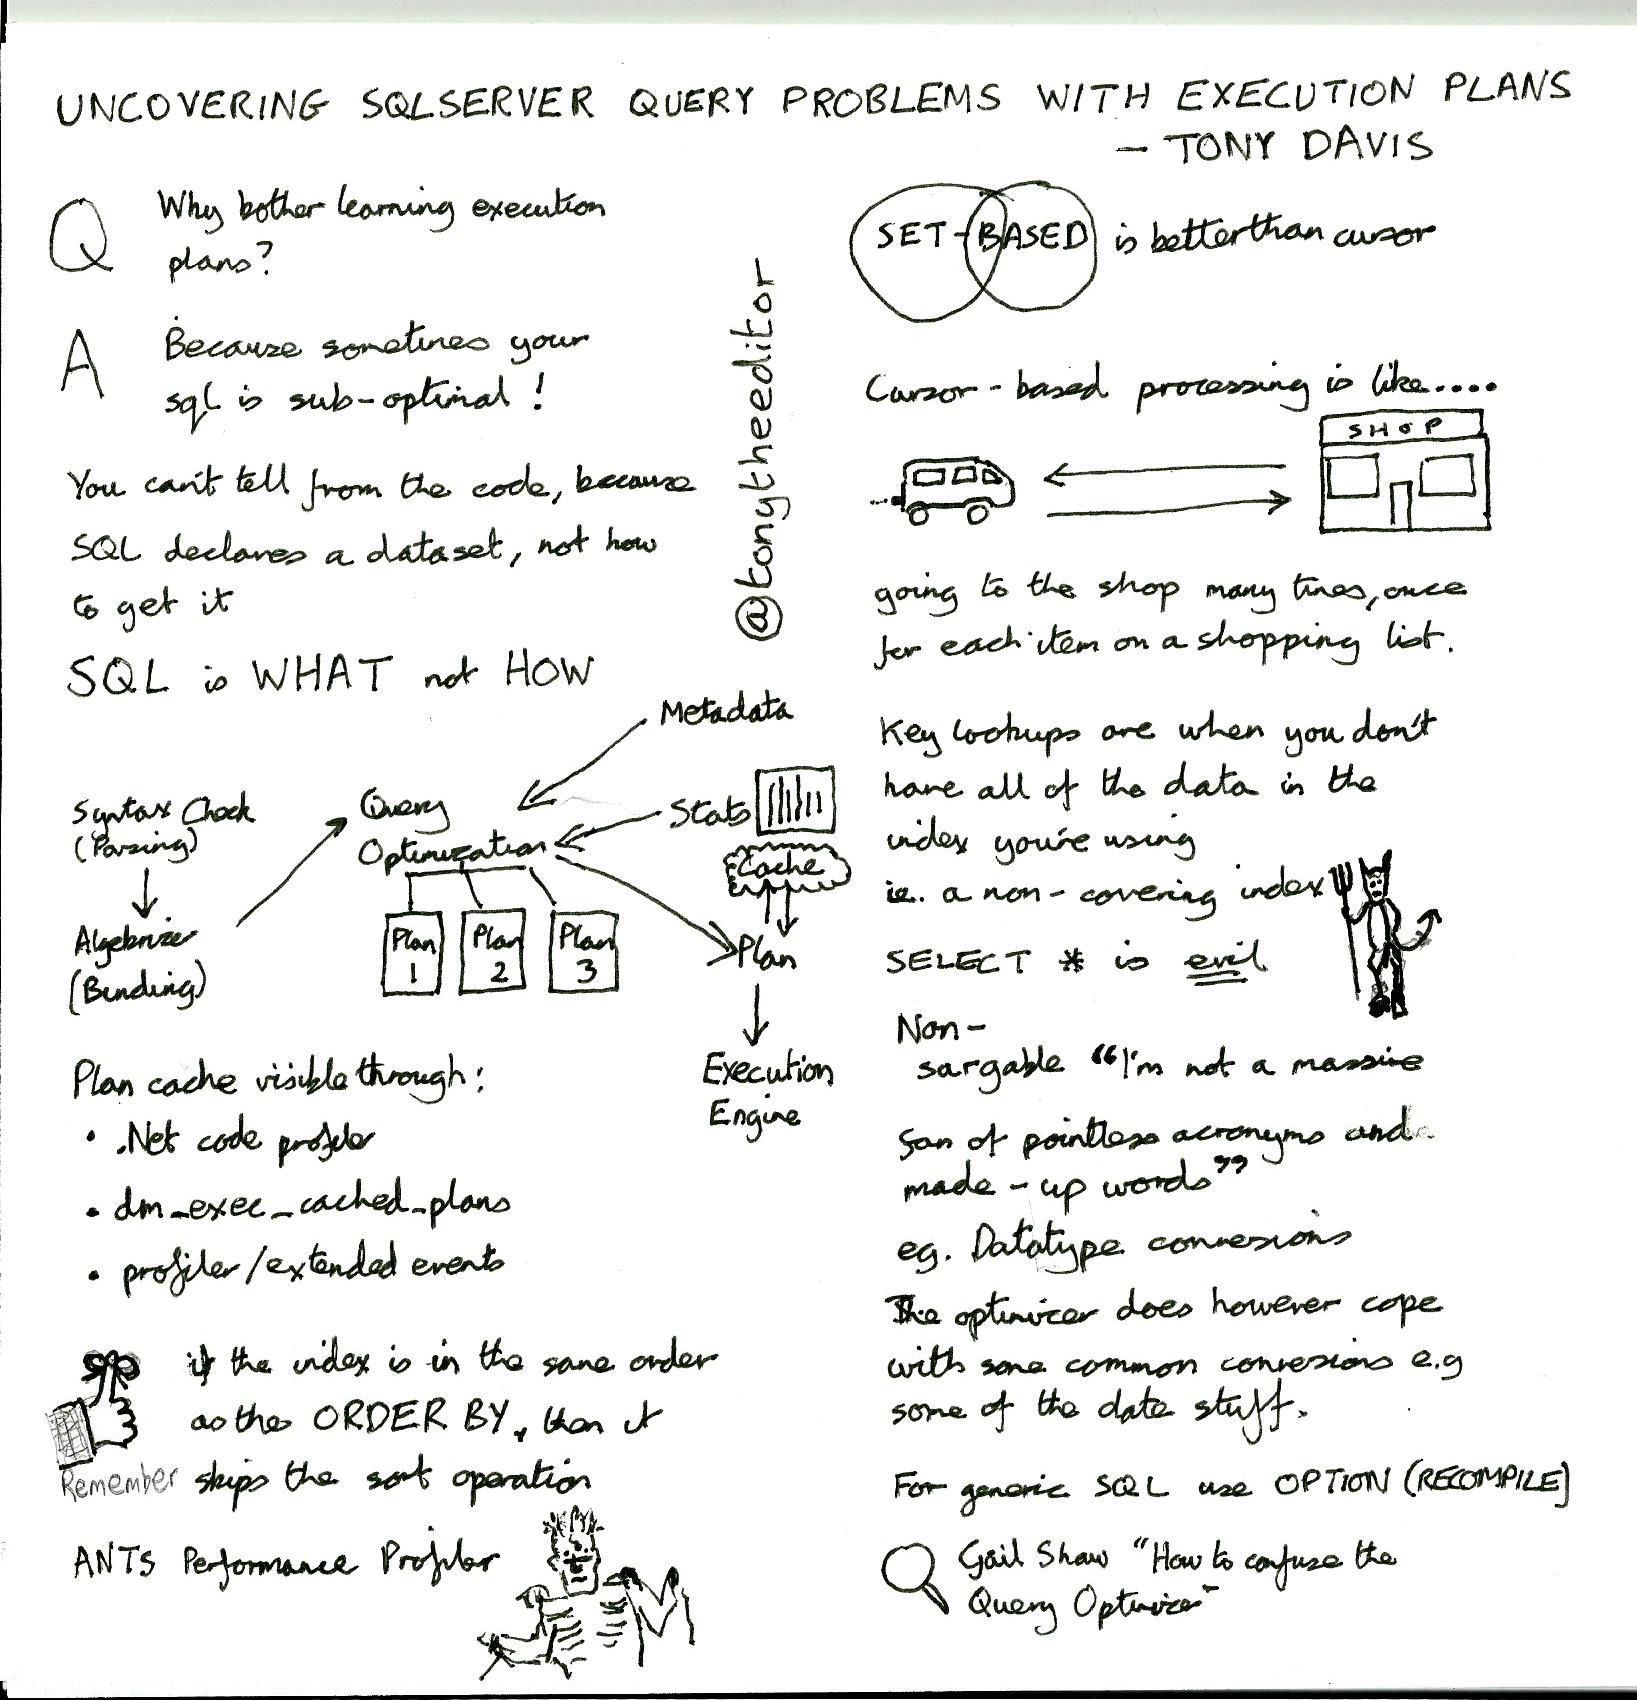 UNCOVERING SQLSERVER QUERY PROBLEMS WITH EXECUTION PLANS
— TONY DAVIS
Q Why bother learning execution
plans?
A Because sometimes your
sql is sub-optimal!
You can't tell from the code, because
SQL declares a dataset, not how
to get it
SQL is WHAT not HOW
@tonytheeditor
Metadata
Syntax Check
(Parsing)
Query
Optimization
Stats
Cache
Algebrizer
(Binding)
Plan
1
Plan
2
Plan
3
Plan
Execution
Engine
Plan cache visible through:
• .Net code profiler
• dm_exec_cached_plans
• profiler/extended events
Remember
if the index is in the same order
as the ORDER BY, then it
skips the sort operation
ANTS Performance Profiler
SET-BASED is better than cursor
Cursor-based processing is like....
SHOP
going to the shop many times, once
for each item on a shopping list.
Key lookups are when you don't
have all of the data in the
index you're using
ie. a non-covering index
SELECT * is evil
Non-
sargable "I'm not a massive
fan of pointless acronyms and
made-up words"
eg. Datatype conversions
The optimizer does however cope
with some common conversions e.g
some of the date stuff.
For generic SQL use OPTION (RECOMPILE)
Gail Shaw "How to confuse the
Query Optimizer"